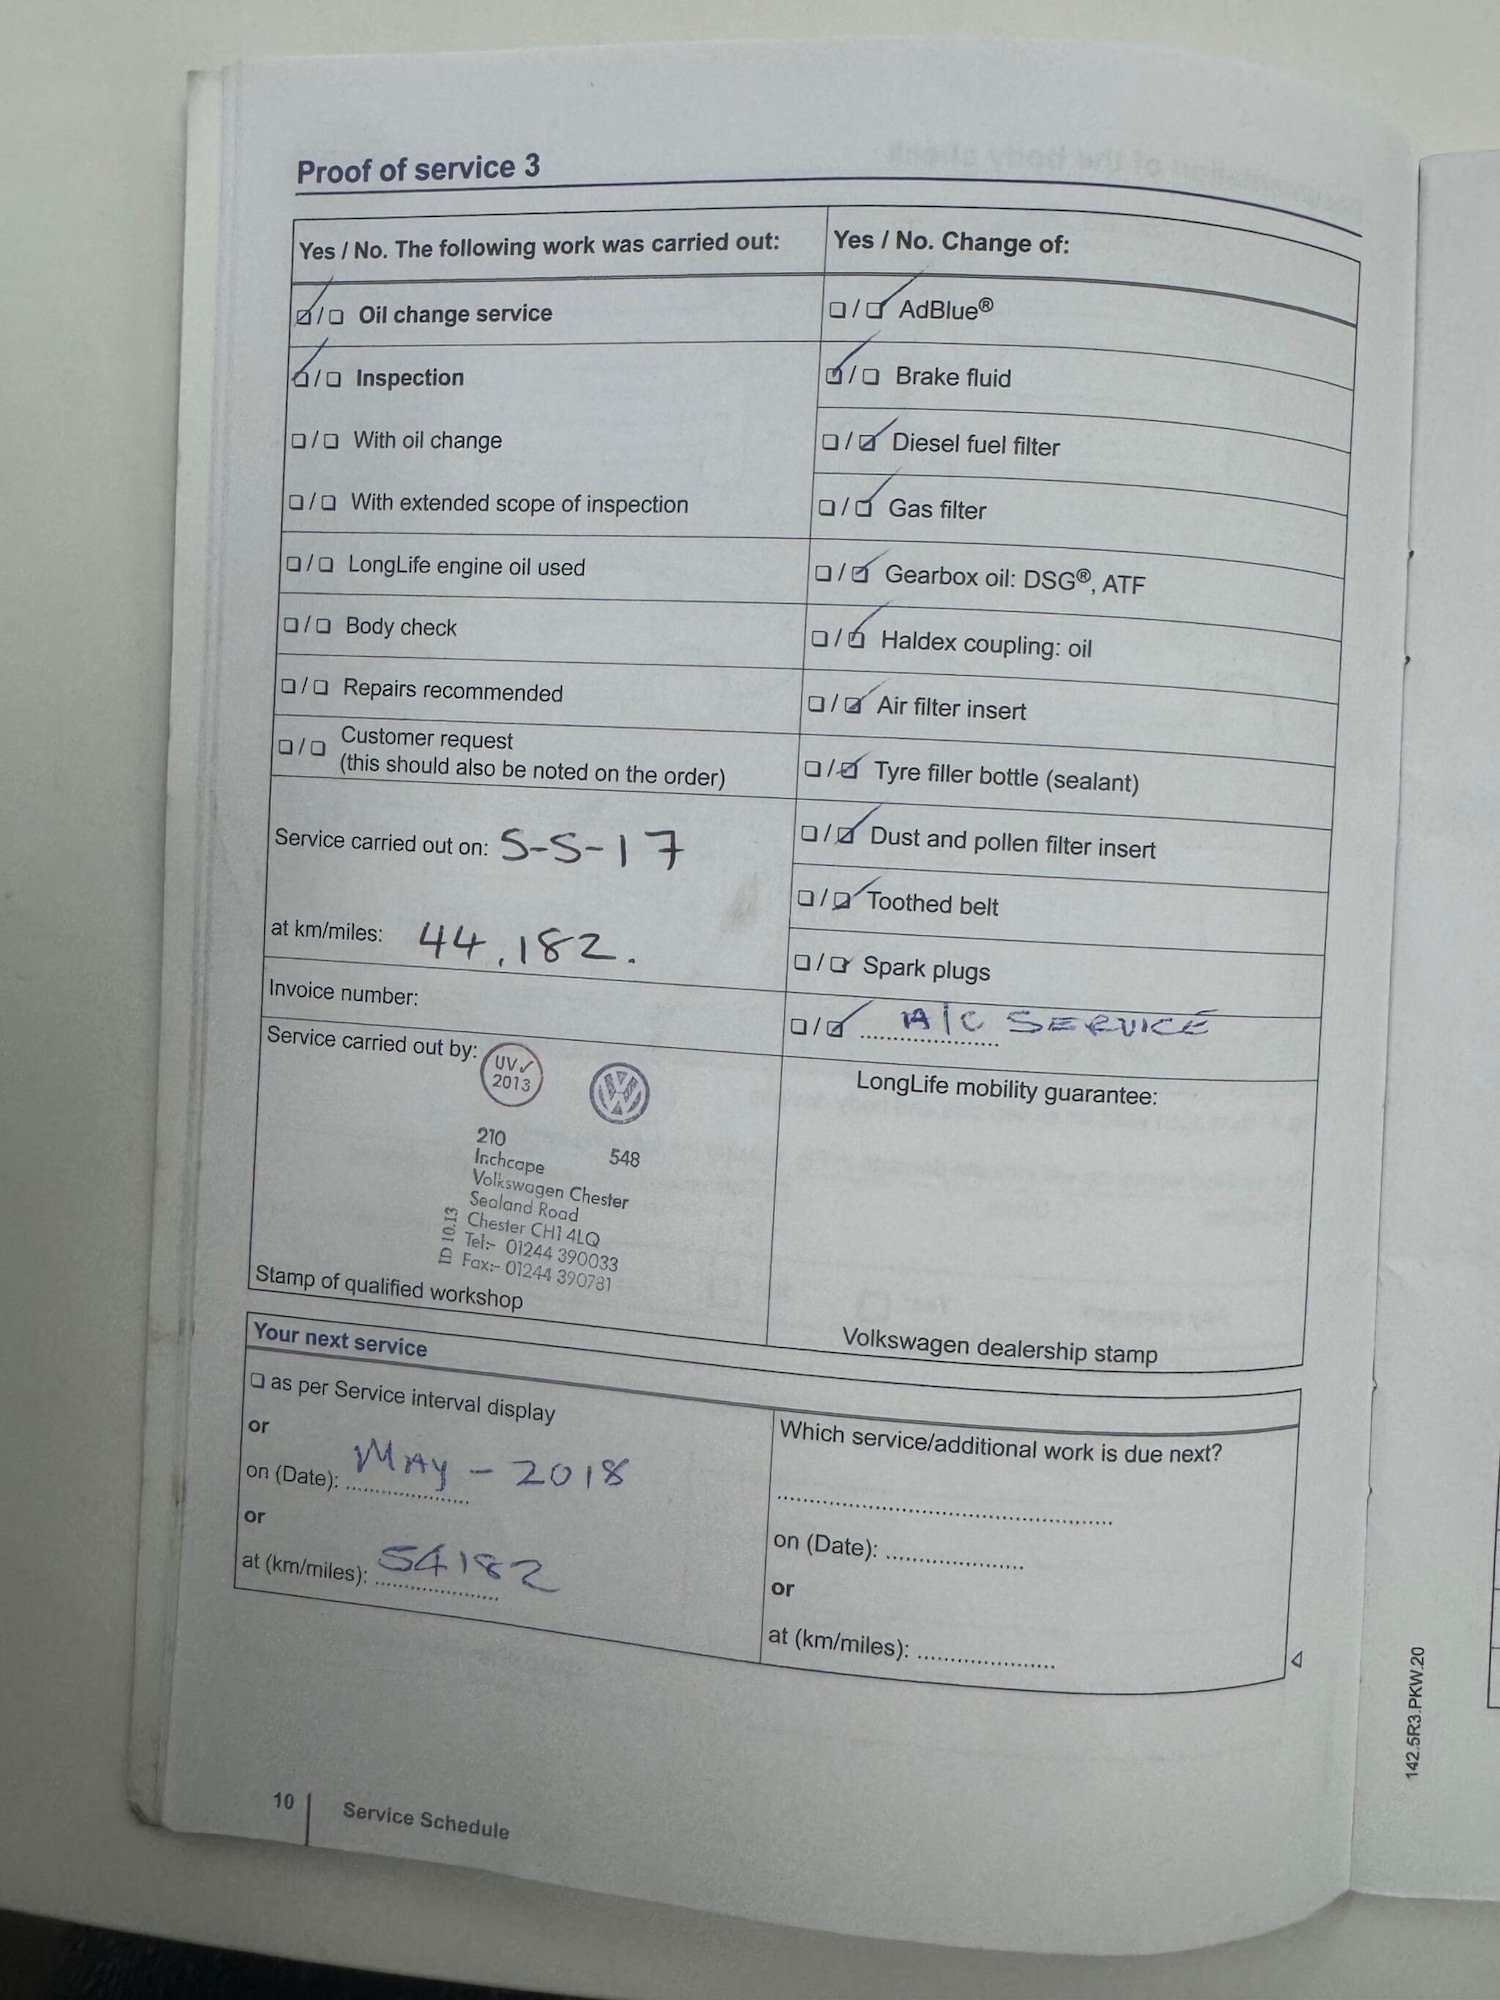 Proof of service 3
Yes / No. The following work was carried out:
☑/☐ Oil change service
☑/☐ Inspection
☐/☐ With oil change
☐/☐ With extended scope of inspection
☐/☐ LongLife engine oil used
☐/☐ Body check
☐/☐ Repairs recommended
☐/☐ Customer request
(this should also be noted on the order)
Service carried out on: 5-5-17
at km/miles: 44,182.
Invoice number:
Service carried out by:
UV✓
2013
210
548
Inchcape
Volkswagen Chester
Sealand Road
Chester CH1 4LQ
Tel:- 01244 390033
Fax:- 01244 390781
ID 10.13
Stamp of qualified workshop
Yes / No. Change of:
☐/☑ AdBlue®
☑/☐ Brake fluid
☐/☑ Diesel fuel filter
☐/☑ Gas filter
☐/☑ Gearbox oil: DSG®, ATF
☐/☑ Haldex coupling: oil
☐/☑ Air filter insert
☐/☑ Tyre filler bottle (sealant)
☐/☑ Dust and pollen filter insert
☐/☑ Toothed belt
☐/☑ Spark plugs
☐/☑ A/C SERVICE
LongLife mobility guarantee:
Volkswagen dealership stamp
Your next service
☐ as per Service interval display
or
on (Date): MAY - 2018
or
at (km/miles): 54182
Which service/additional work is due next?
on (Date): ......................
or
at (km/miles): ......................
142.5R3.PKW.20
10
Service Schedule